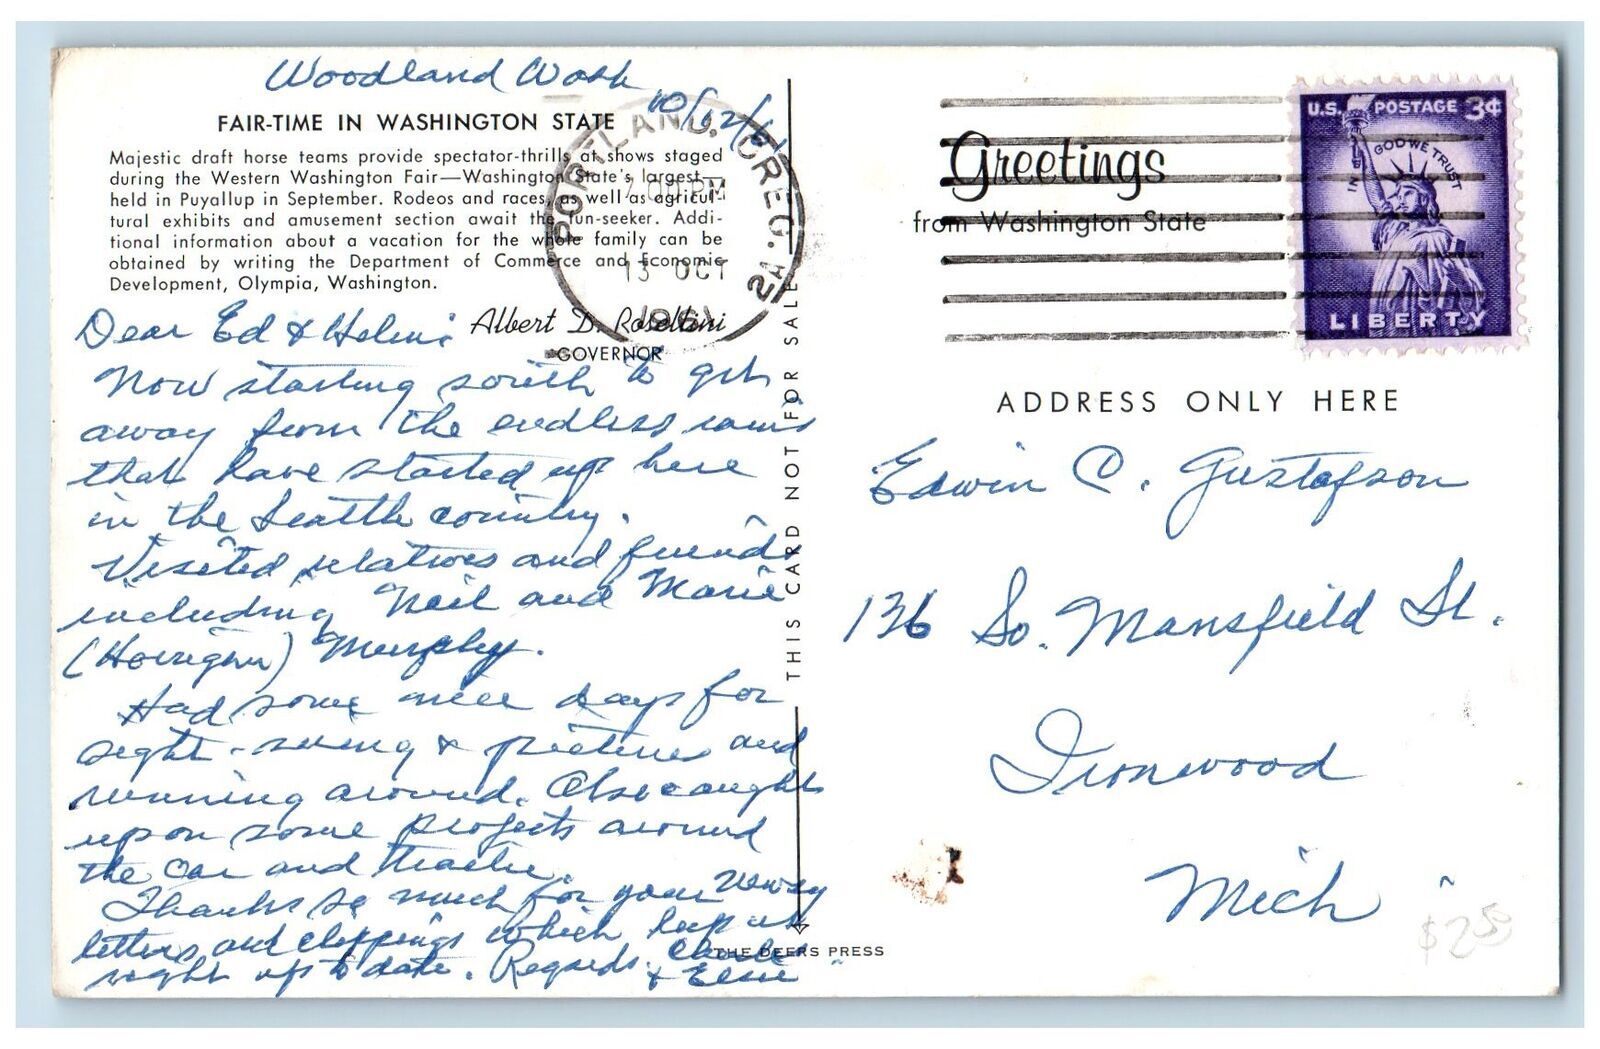 Woodland Wash
10/12/61
FAIR-TIME IN WASHINGTON STATE
Majestic draft horse teams provide spectator-thrills at shows staged
during the Western Washington Fair—Washington State's largest—
held in Puyallup in September. Rodeos and races, as well as agricul-
tural exhibits and amusement section await the fun-seeker. Addi-
tional information about a vacation for the whole family can be
obtained by writing the Department of Commerce and Economic
Development, Olympia, Washington.
Albert D. Rosellini
GOVERNOR
PORTLAND, OREG. 2A
7:00 PM
13 OCT
1961
Dear Ed & Helen:
Now starting south to get
away from the endless rains
that have started up here
in the Seattle country.
Visited relatives and friends
including Neil and Marie
(Horrigan) Murphy.
Had some nice days for
sight-seeing & pictures and
running around. Also caught
upon some projects around
the car and trailer.
Thanks so much for your newsy
letters and clippings which keep us
right up to date. Regards.
& Elsie
THIS CARD NOT FOR SALE
THE DEERS PRESS
Greetings
from Washington State
U.S. POSTAGE 3¢
IN GOD WE TRUST
LIBERTY
ADDRESS ONLY HERE
Edwin C. Gustafson
136 So. Mansfield St.
Ironwood
Mich
$2.50